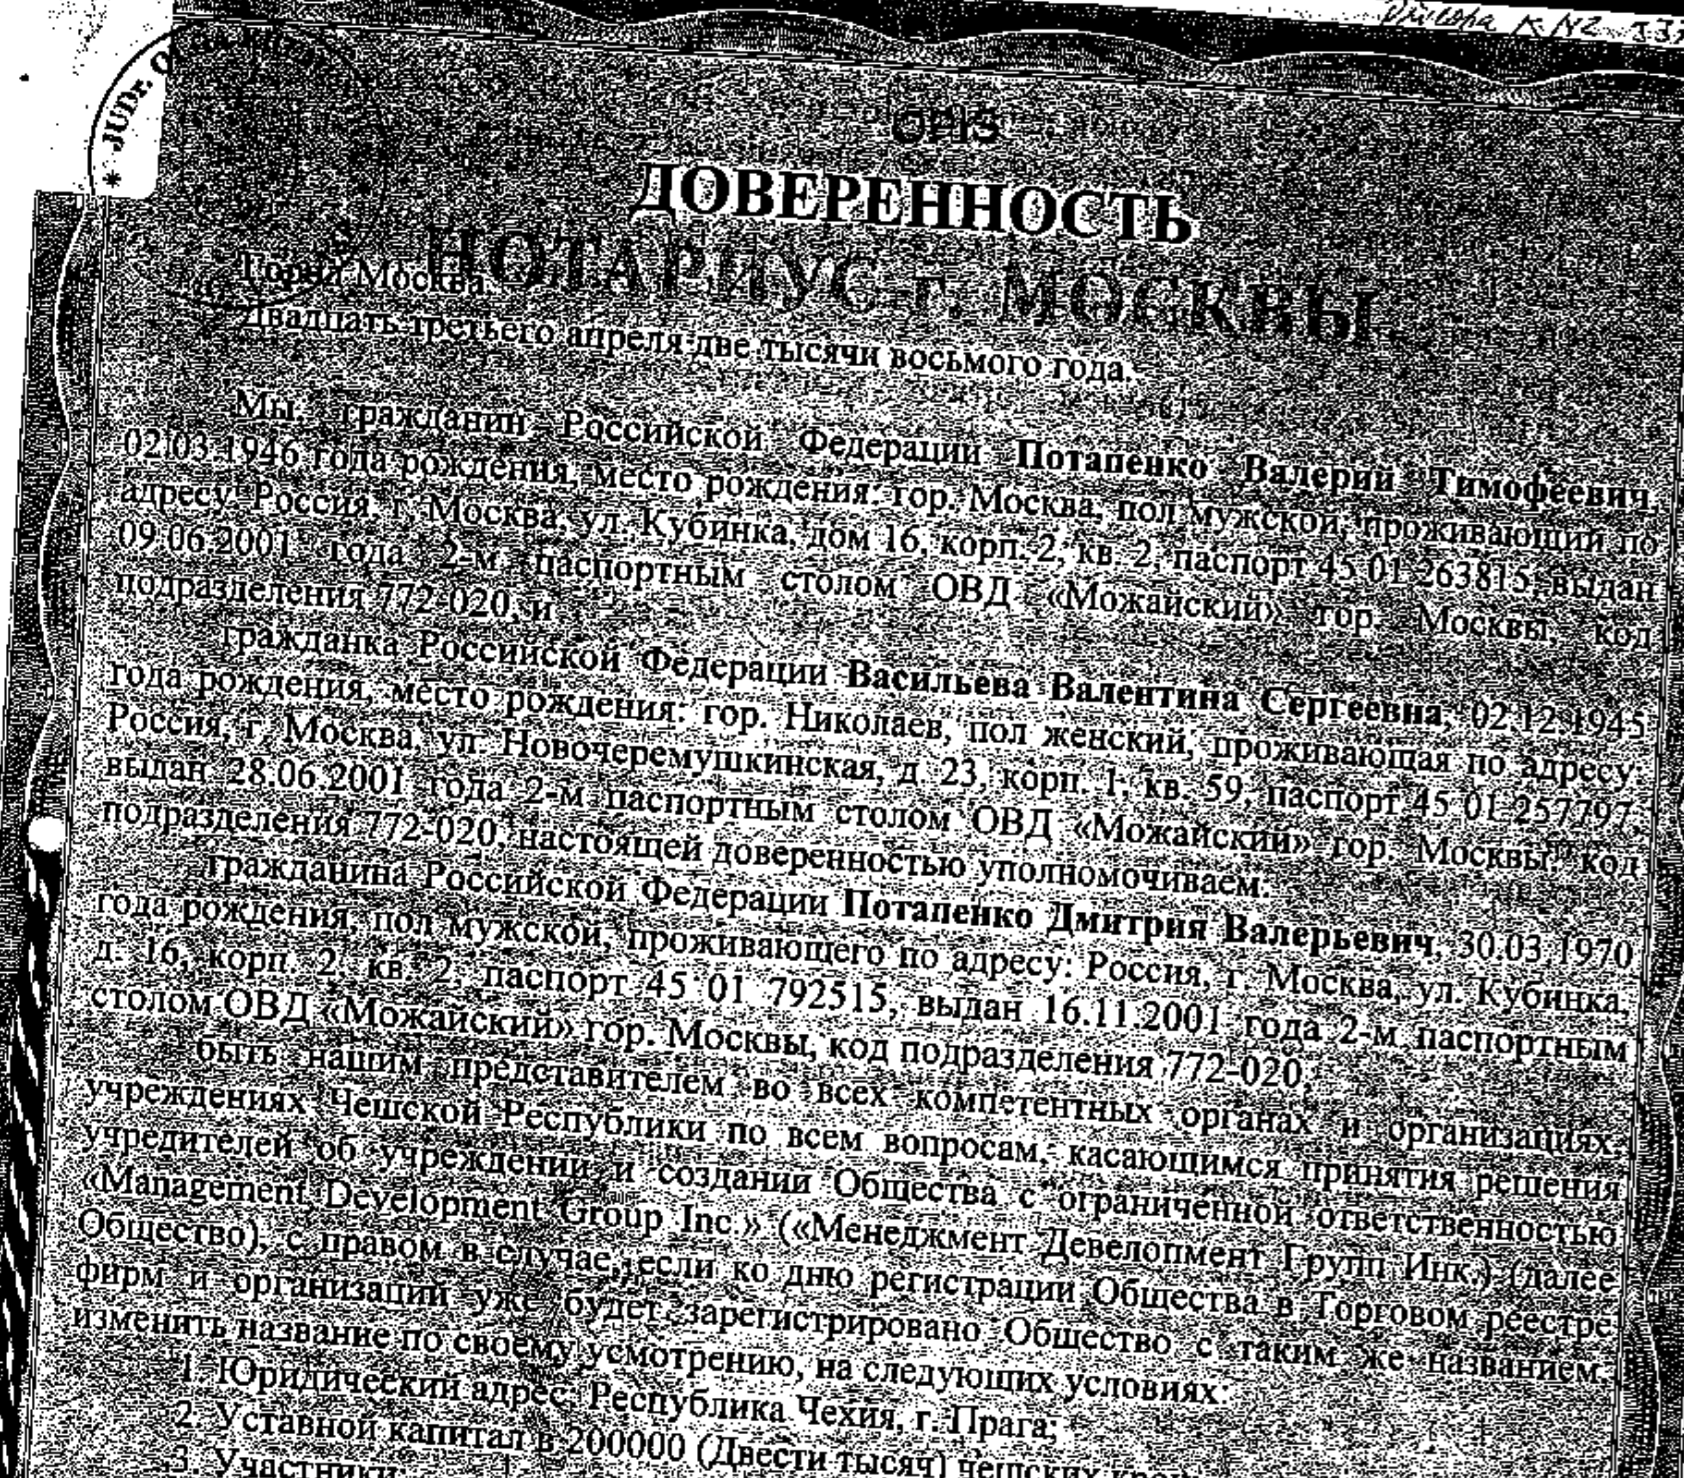 Příloha K NZ 337
OPIS
* JUDr. O
ДОВЕРЕННОСТЬ
НОТАРИУС г. МОСКВЫ
Город Москва.
Двадцать третьего апреля две тысячи восьмого года.
Мы, гражданин Российской Федерации Потапенко Валерий Тимофеевич,
02.03.1946 года рождения, место рождения: гор. Москва, пол мужской, проживающий по
адресу: Россия, г. Москва, ул. Кубинка, дом 16, корп. 2, кв. 2, паспорт 45 01 263815, выдан
09.06.2001 года 2-м паспортным столом ОВД «Можайский» гор. Москвы, код
подразделения 772-020, и
гражданка Российской Федерации Васильева Валентина Сергеевна, 02.12.1945
года рождения, место рождения: гор. Николаев, пол женский, проживающая по адресу:
Россия, г. Москва, ул. Новочеремушкинская, д. 23, корп. 1, кв. 59, паспорт 45 01 257797,
выдан 28.06.2001 года 2-м паспортным столом ОВД «Можайский» гор. Москвы, код
подразделения 772-020, настоящей доверенностью уполномочиваем:
гражданина Российской Федерации Потапенко Дмитрия Валерьевич, 30.03.1970
года рождения, пол мужской, проживающего по адресу: Россия, г. Москва, ул. Кубинка,
д. 16, корп. 2, кв. 2, паспорт 45 01 792515, выдан 16.11.2001 года 2-м паспортным
столом ОВД «Можайский» гор. Москвы, код подразделения 772-020,
быть нашим представителем во всех компетентных органах и организациях,
учреждениях Чешской Республики по всем вопросам, касающимся принятия решения
учредителей об учреждении и создании Общества с ограниченной ответственностью
«Management Development Group Inc.» («Менеджмент Девелопмент Групп Инк.) (далее
Общество), с правом в случае, если ко дню регистрации Общества в Торговом реестре
фирм и организаций уже будет зарегистрировано Общество с таким же названием,
изменить название по своему усмотрению, на следующих условиях:
1. Юридический адрес: Республика Чехия, г. Прага;
2. Уставной капитал в 200000 (Двести тысяч) чешских крон
3. Участники: